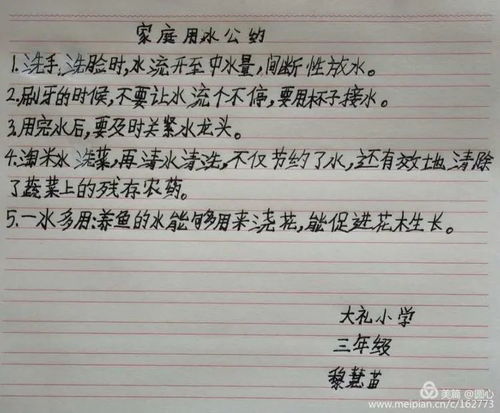 家庭用水公约
1.洗手、洗脸时,水流开至中水量,间断性放水。
2.刷牙的时候,不要让水流个不停,要用杯子接水。
3.用完水后,要及时关紧水龙头。
4.淘米水洗菜,再清水清洗,不仅节约了水,还有效地清除
了蔬菜上的残存农药。
5.一水多用:养鱼的水能够用来浇花,能促进花木生长。
大礼小学
三年级
黎慧苗
美篇 @圆心
www.meipian.cn/c/162773